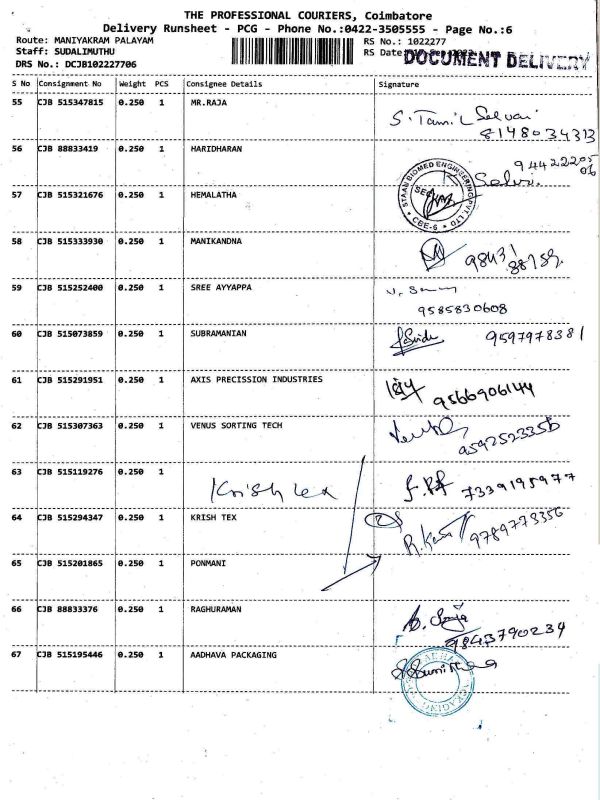 THE PROFESSIONAL COURIERS, Coimbatore
Delivery Runsheet - PCG - Phone No.:0422-3505555 - Page No.:6
Route: MANIYAKRAM PALAYAM RS No.: 1022277
Staff: SUDALIMUTHU RS Date:
DOCUMENT DELIVERY
DRS No.: DCJB102227706
S No Consignment No Weight PCS Consignee Details Signature
55 CJB 515347815 0.250 1 MR.RAJA
S. Tamil Selvan
8148034313
56 CJB 88833419 0.250 1 HARIDHARAN
STAAN BIOMED ENGINEERING PVT. LTD
CBE-6
Selvi.
57 CJB 515321676 0.250 1 HEMALATHA
58 CJB 515333930 0.250 1 MANIKANDNA
59 CJB 515252400 0.250 1 SREE AYYAPPA
9585830608
60 CJB 515073859 0.250 1 SUBRAMANIAN
9597978381
61 CJB 515291951 0.250 1 AXIS PRECISSION INDUSTRIES
9566906144
62 CJB 515307363 0.250 1 VENUS SORTING TECH
9592523356
63 CJB 515119276 0.250 1
Krish tex
7339195977
64 CJB 515294347 0.250 1 KRISH TEX
9789773356
65 CJB 515201865 0.250 1 PONMANI
66 CJB 88833376 0.250 1 RAGHURAMAN
9843790234
67 CJB 515195446 0.250 1 AADHAVA PACKAGING